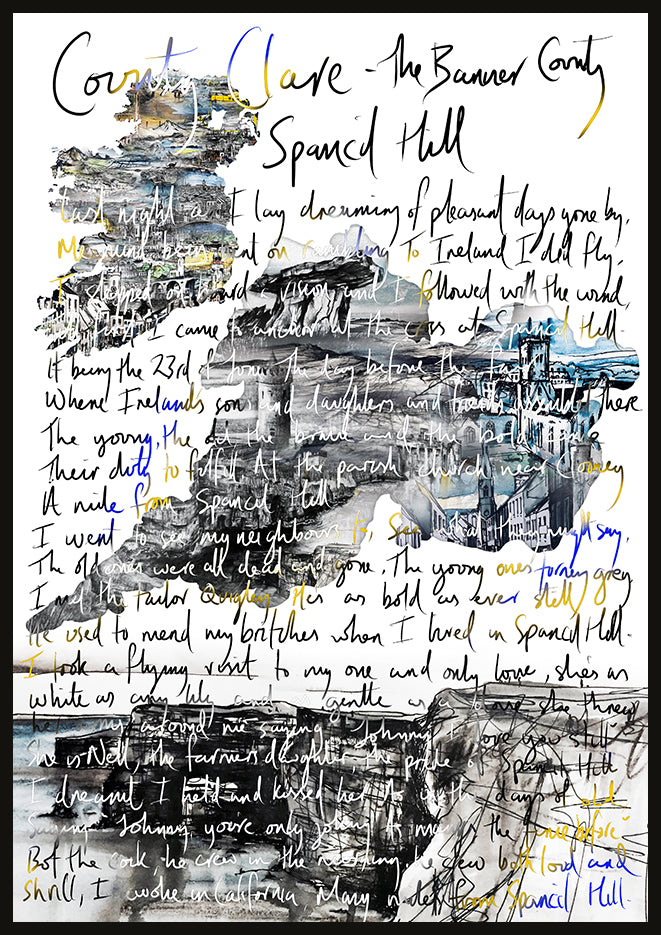 County Clare - The Banner County
Spancil Hill
Last night as I lay dreaming of pleasant days gone by,
My mind being bent on rambling To Ireland I did fly,
I stepped on board a vision and I followed with the wind,
I came to anchor at the cross at Spancil Hill.
It being the 23rd of June the day before the fair
Where Irelands sons and daughters and there
The young, the old the brave and the bold came
Their duty to fulfill At the parish church near Clooney
A mile from Spancil Hill
I went to see my neighbours to see what they might say,
The old ones were all dead and gone, The young ones turning grey
I met the tailor Quigley Hes as bold as ever still
He used to mend my britches when I lived in Spancil Hill.
I took a flying visit to my one and only love, shes as
white as any lily and gentle as a dove she threw
her arms around me saying "Johnny I love you still"
She is Nell, the farmers daughter, the pride of Spancil Hill
I dreamt I held and kissed her as in the days of old
Johnny, youre only joking as many the time before"
But the cock he crew in the morning, he crew both loud and
shrill, I awoke in California Many miles from Spancil Hill.